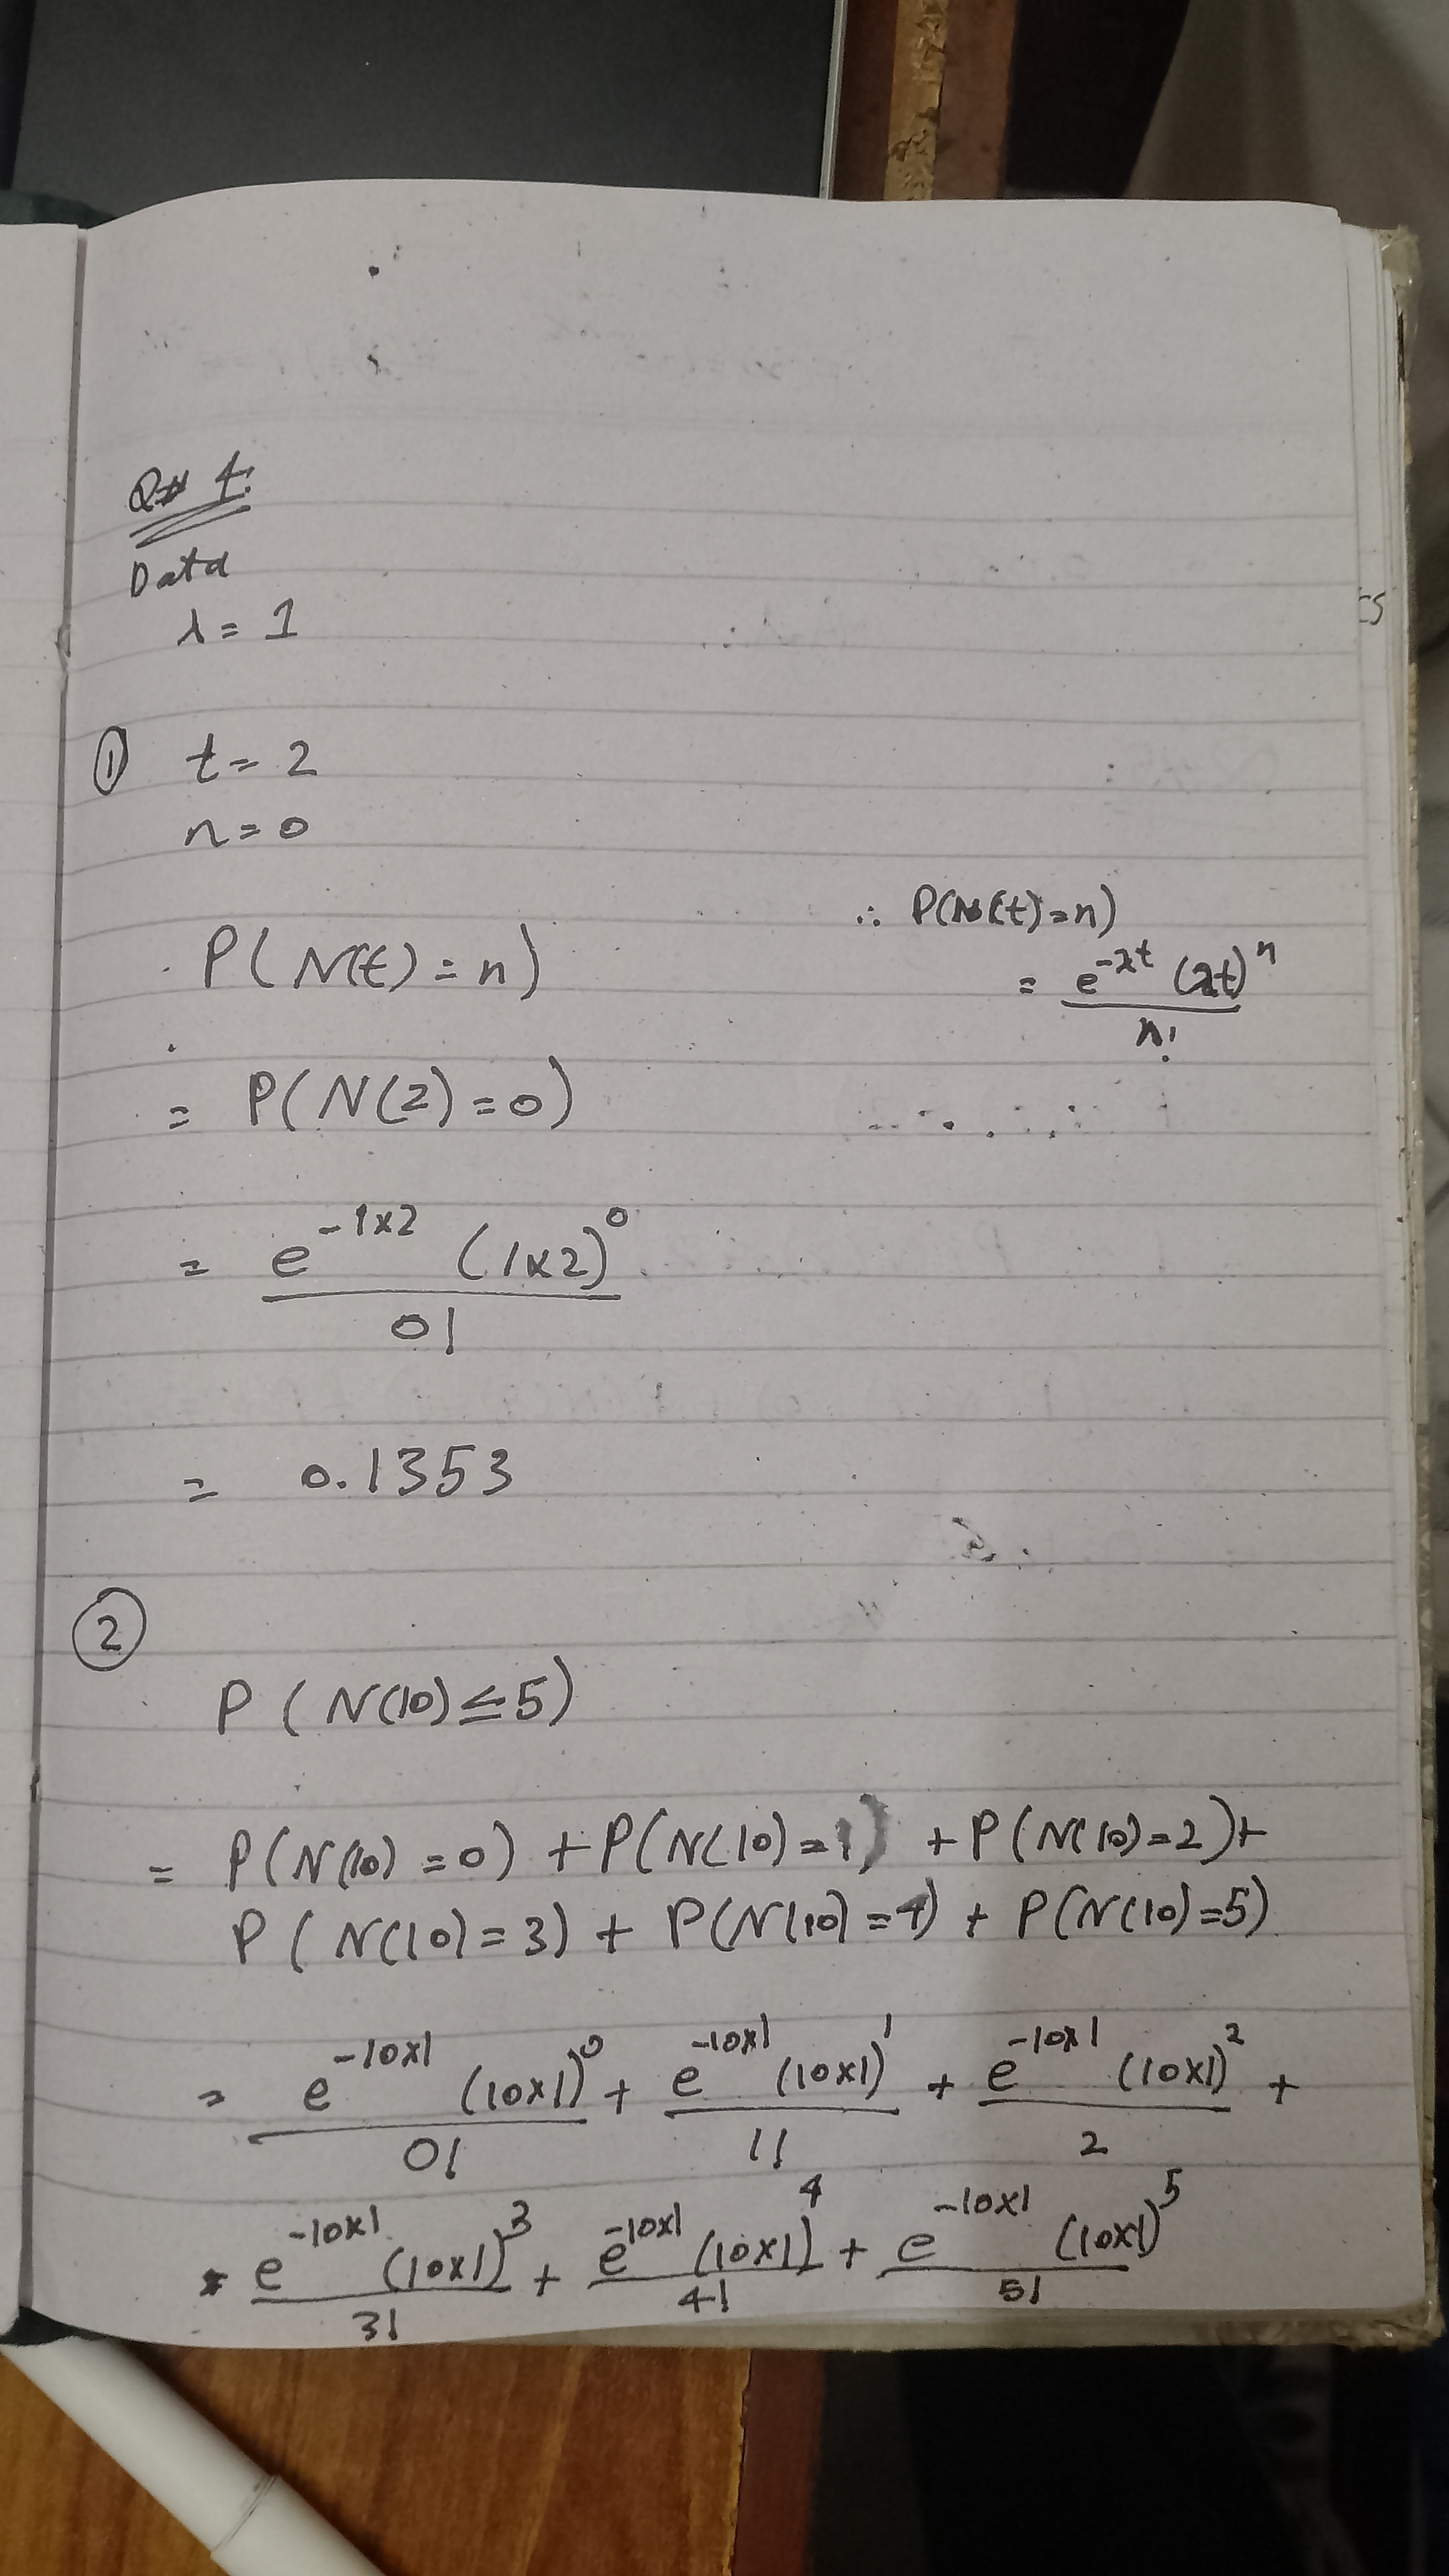 Q# 4:
Data
λ = 1
① t = 2
n = 0
P(N(t) = n)
∴ P(N(t) = n)
= e^-λt (λt)^n / n!
= P(N(2) = 0)
= e^-1x2 (1x2)^0 / 0!
= 0.1353
②
P(N(10) ≤ 5)
= P(N(10) = 0) + P(N(10) = 1) + P(N(10) = 2) +
P(N(10) = 3) + P(N(10) = 4) + P(N(10) = 5)
= e^-10x1 (10x1)^0 / 0! + e^-10x1 (10x1)^1 / 1! + e^-10x1 (10x1)^2 / 2 +
e^-10x1 (10x1)^3 / 3! + e^-10x1 (10x1)^4 / 4! + e^-10x1 (10x1)^5 / 5!